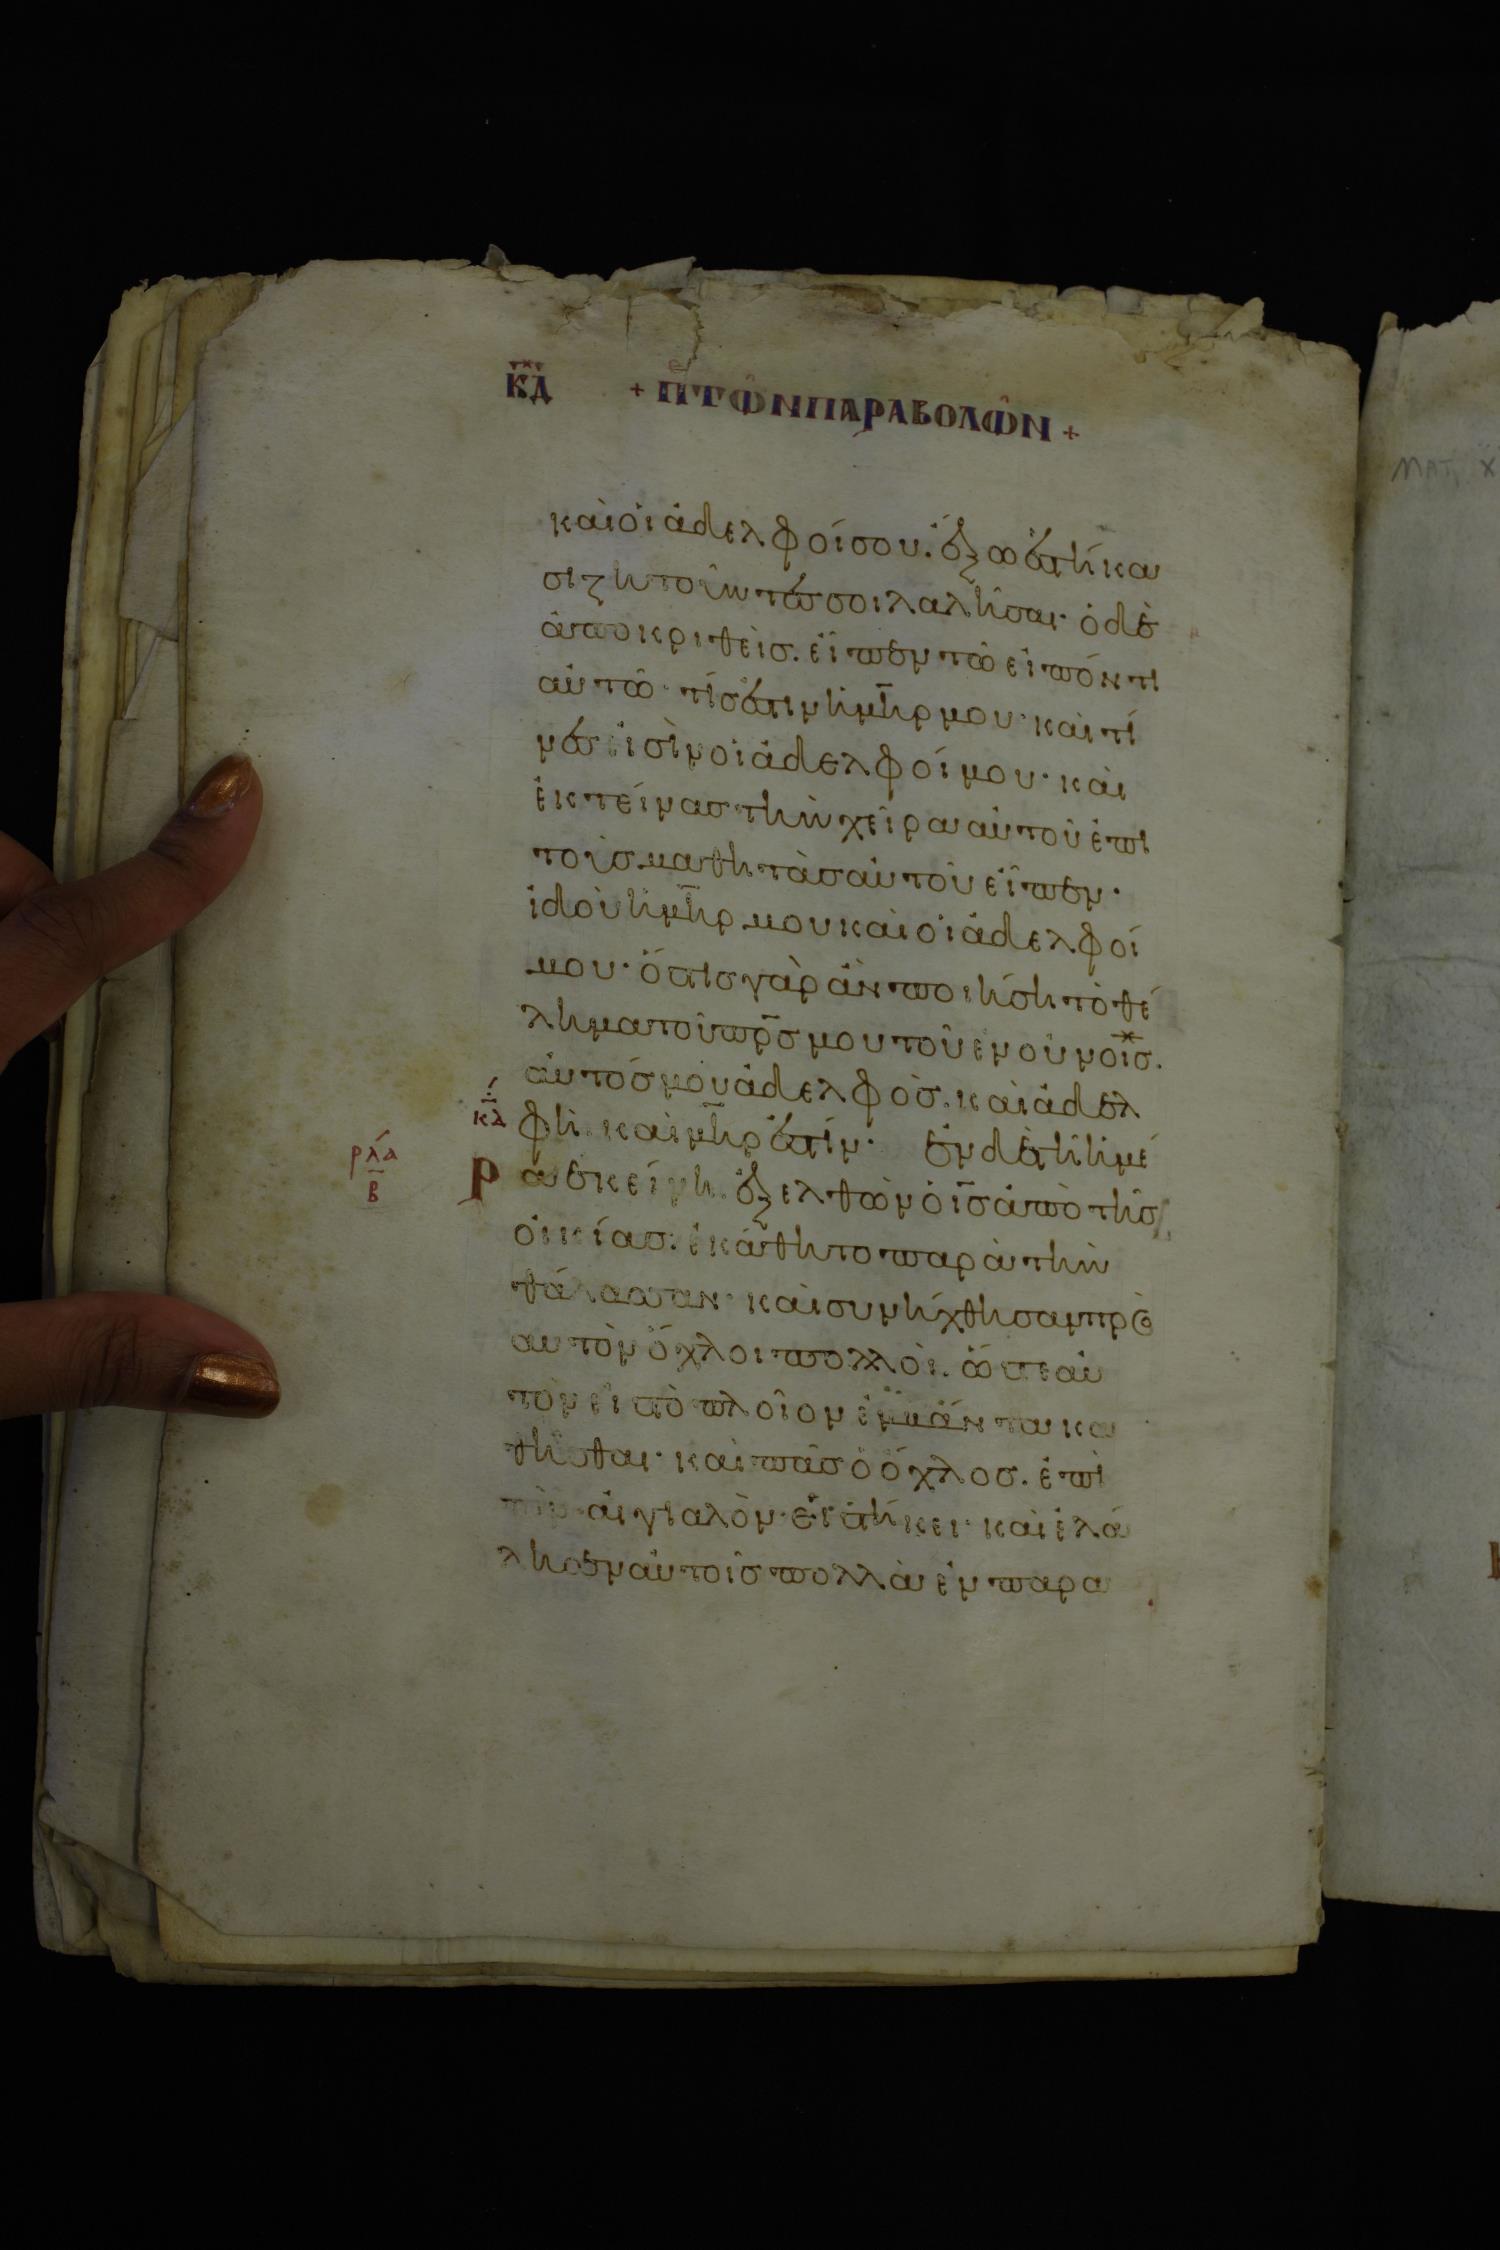 ΚΔ + ΠΕ ΤΩΝ ΠΑΡΑΒΟΛΩΝ +
καὶ οἱ ἀδελφοί σου. ἔξω ἑστήκα
σι ζητοῦντές σοι λαλῆσαι· ὁ δὲ
ἀποκριθεὶς. εἶπεν τῶ εἰπόντι
αὐτῶ· τίς ἐστιν ἡ μ̅η̅ρ μου· καὶ τί
νές εἰσὶν οἱ ἀδελφοί μου· καὶ
ἐκτείνας τὴν χεῖρα αὐτοῦ ἐπὶ
τοὺς μαθητὰς αὐτοῦ εἶπεν·
ἰδοὺ ἡ μ̅η̅ρ μου καὶ οἱ ἀδελφοί
μου· ὅστις γὰρ ἂν ποιήση τὸ θέ
λημα τοῦ π̅ρ̅ς μου τοῦ ἐν οὐνοῖς.
αὐτός μου ἀδελφὸς. καὶ ἀδελ
κδ φὴ. καὶ μ̅η̅ρ ἐστίν· ἐν δὲ τῆ ἡμέ
ρλα β ρα ἐκείνη. ἐξελθὼν ὁ ι̅ς ἀπὸ τῆς
οἰκίας. ἐκάθητο παρὰ τὴν
θάλασσαν· καὶ συνήχθησαν πρὸς
αὐτὸν ὄχλοι πολλοὶ. ὥστε αὐ
τὸν εἰς τὸ πλοῖον ἐμβάντα κα
θῆσθαι· καὶ πᾶς ὁ ὄχλος. ἐπὶ
τὸν αἰγιαλὸν εἱστήκει· καὶ ἐλά
λησεν αὐτοῖς πολλὰ ἐν παρα